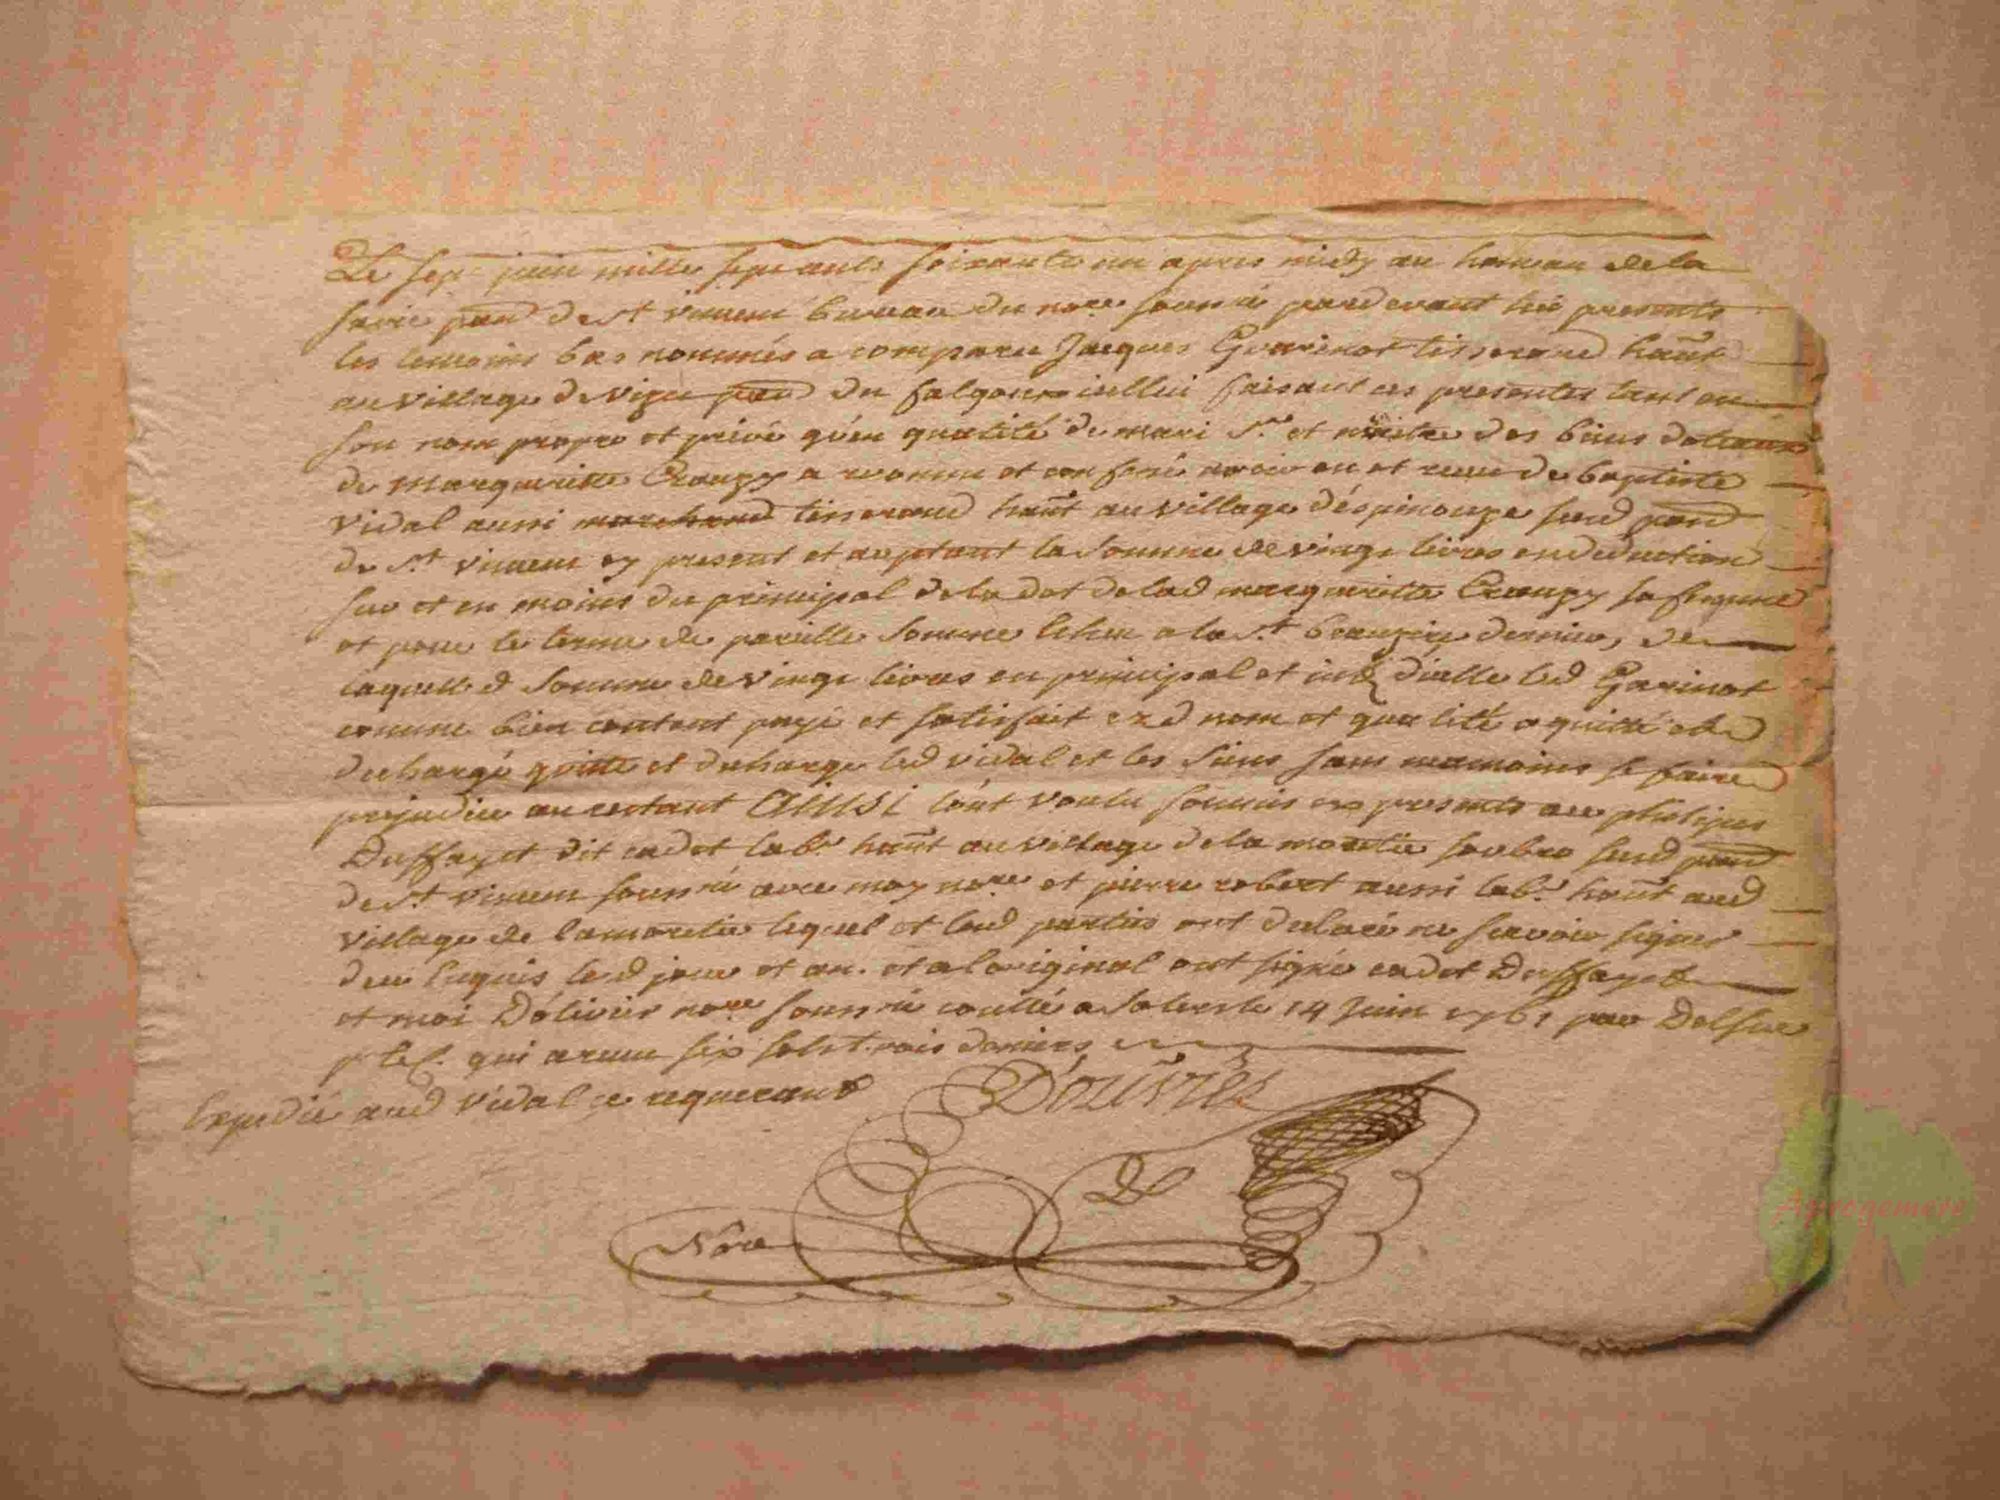 Le sept juin mille sept cents soixante un apres midy au hameau de la
parr de st vincent bureau du nore soussné pardevant lui presents
les temoins bas nommés a comparu Jacques Guarinot tisserand hant
au village de vizet parr du falgoux icellui faisant ces presentes tant en
son nom propre et privé qu'en qualité de mari sr et maitre des biens dotaux
de marguerite Croupy a reconnu et confessé avoir eu et reçu de baptiste
vidal aussi marchand tisserand hant au village d'éspinouze susd parr
de st vincent cy present et aceptant la somme de vingt livres en deduction
sur et en moins du principal de la dot de lad marguerite Croupy sa femme
et pour le terme de pareille somme echeu a la st brauzire dernier, de
laquelle d somme de vingt livres en principal et d'icelle led Garinot
comme bien content payé et satisfait esd nom et qualité a quitté et
dechargé quitte et decharge led vidal et les siens sans neamoins se faire
prejudice au restant Ainsi tout voulu soumis es presents ave philipes
Duffayet dit cadet labr hant au village de la moretie soubro susd parr
de st vincent soussné avec moy nore et pierre robert aussi labr hant aud
village de lamoretie lequel et lesd parties ont declaré ne scavoir signer
deu enquis led jour et an. et a l'original ont signé cadet Duffayet
et moi Dolivier nore soussné conllé a Salers le 14 juin 1761 par Delsuc
qui a reçu six sols trois deniers
Expedié aud vidal ce requerant
Douvrier
Nore